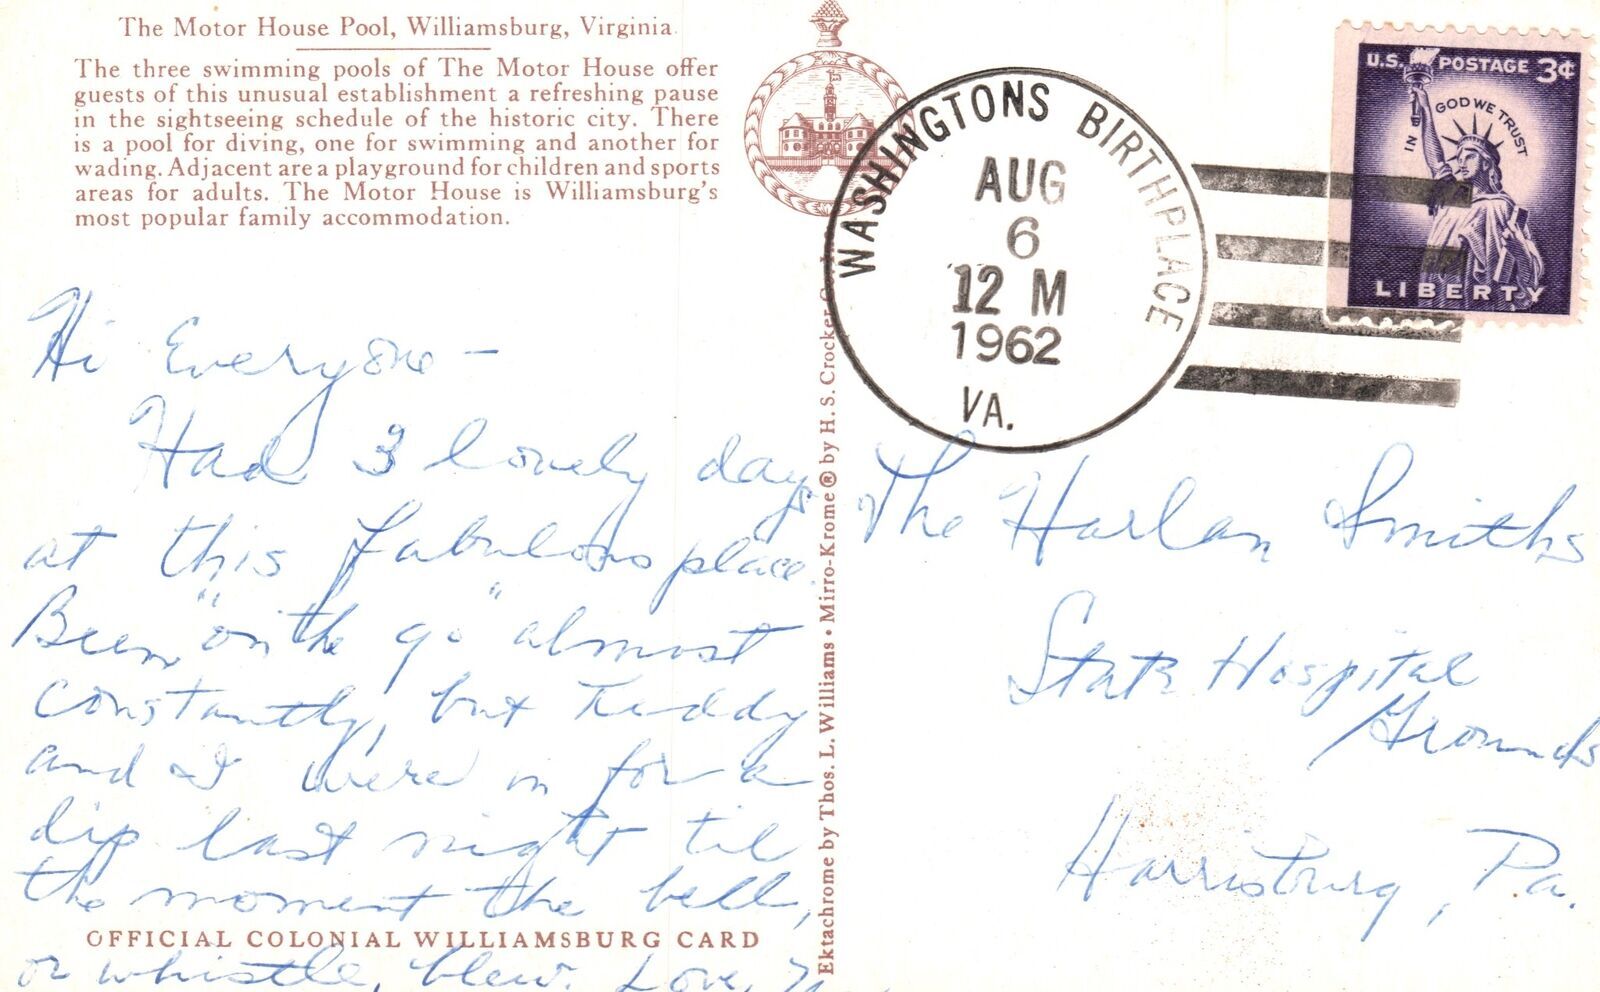 The Motor House Pool, Williamsburg, Virginia.
The three swimming pools of The Motor House offer
guests of this unusual establishment a refreshing pause
in the sightseeing schedule of the historic city. There
is a pool for diving, one for swimming and another for
wading. Adjacent are a playground for children and sports
areas for adults. The Motor House is Williamsburg's
most popular family accommodation.
WASHINGTONS BIRTHPLACE
AUG
6
12 M
1962
VA.
U.S. POSTAGE 3¢
IN GOD WE TRUST
LIBERTY
Hi Everyone -
Had 3 lovely days
at this fabulous place.
Been "on the go" almost
constantly, but Teddy
and I were in for a
dip last night til
the moment the bell,
or whistle, blew. Love,
OFFICIAL COLONIAL WILLIAMSBURG CARD
Ektachrome by Thos. L. Williams • Mirro-Krome® by H. S. Crocker
The Harlan Smiths
State Hospital
Grounds
Harrisburg, Pa.